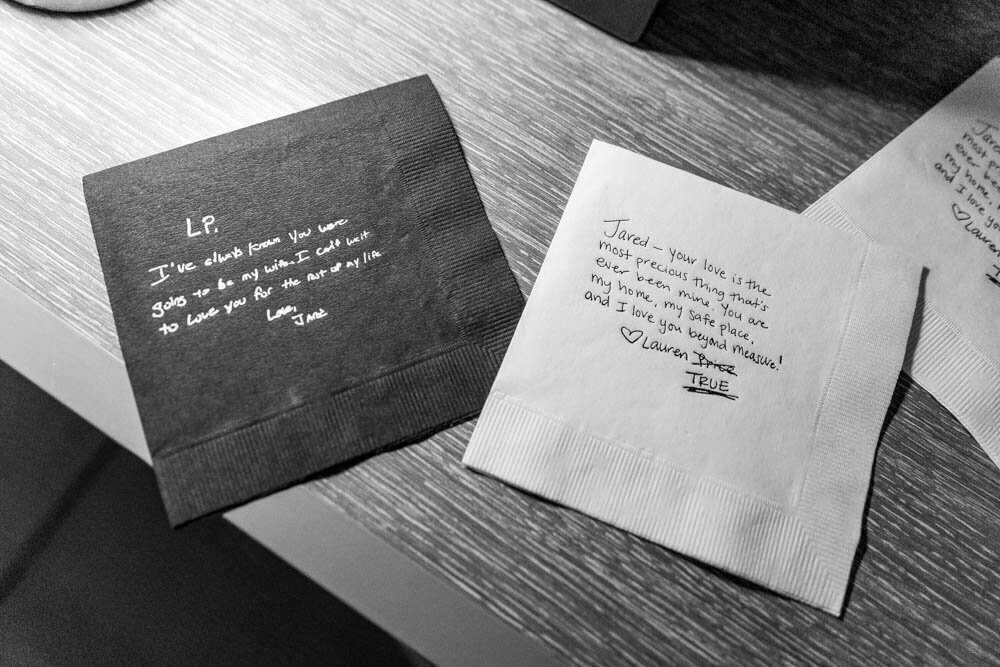 LP.
I've always known you were
going to be my wife. I can't wait
to love you for the rest of my life
Love,
Jared – your love is the
most precious thing that's
ever been mine. You are
my home, my safe place,
and I love you beyond measure!
♡ Lauren Price
TRUE
Jared
most
ever
my home,
and I love you
♡ Lauren